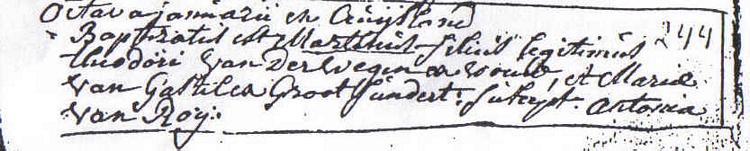 Octava januarii ex Cruysland
Baptizatus est Martinus filius legitimus 244
theodori Van Der Wegen ex Wouw, et Mariæ
Van Gastel ex Groot Sundert: suscept. Antonia
Van Roy: